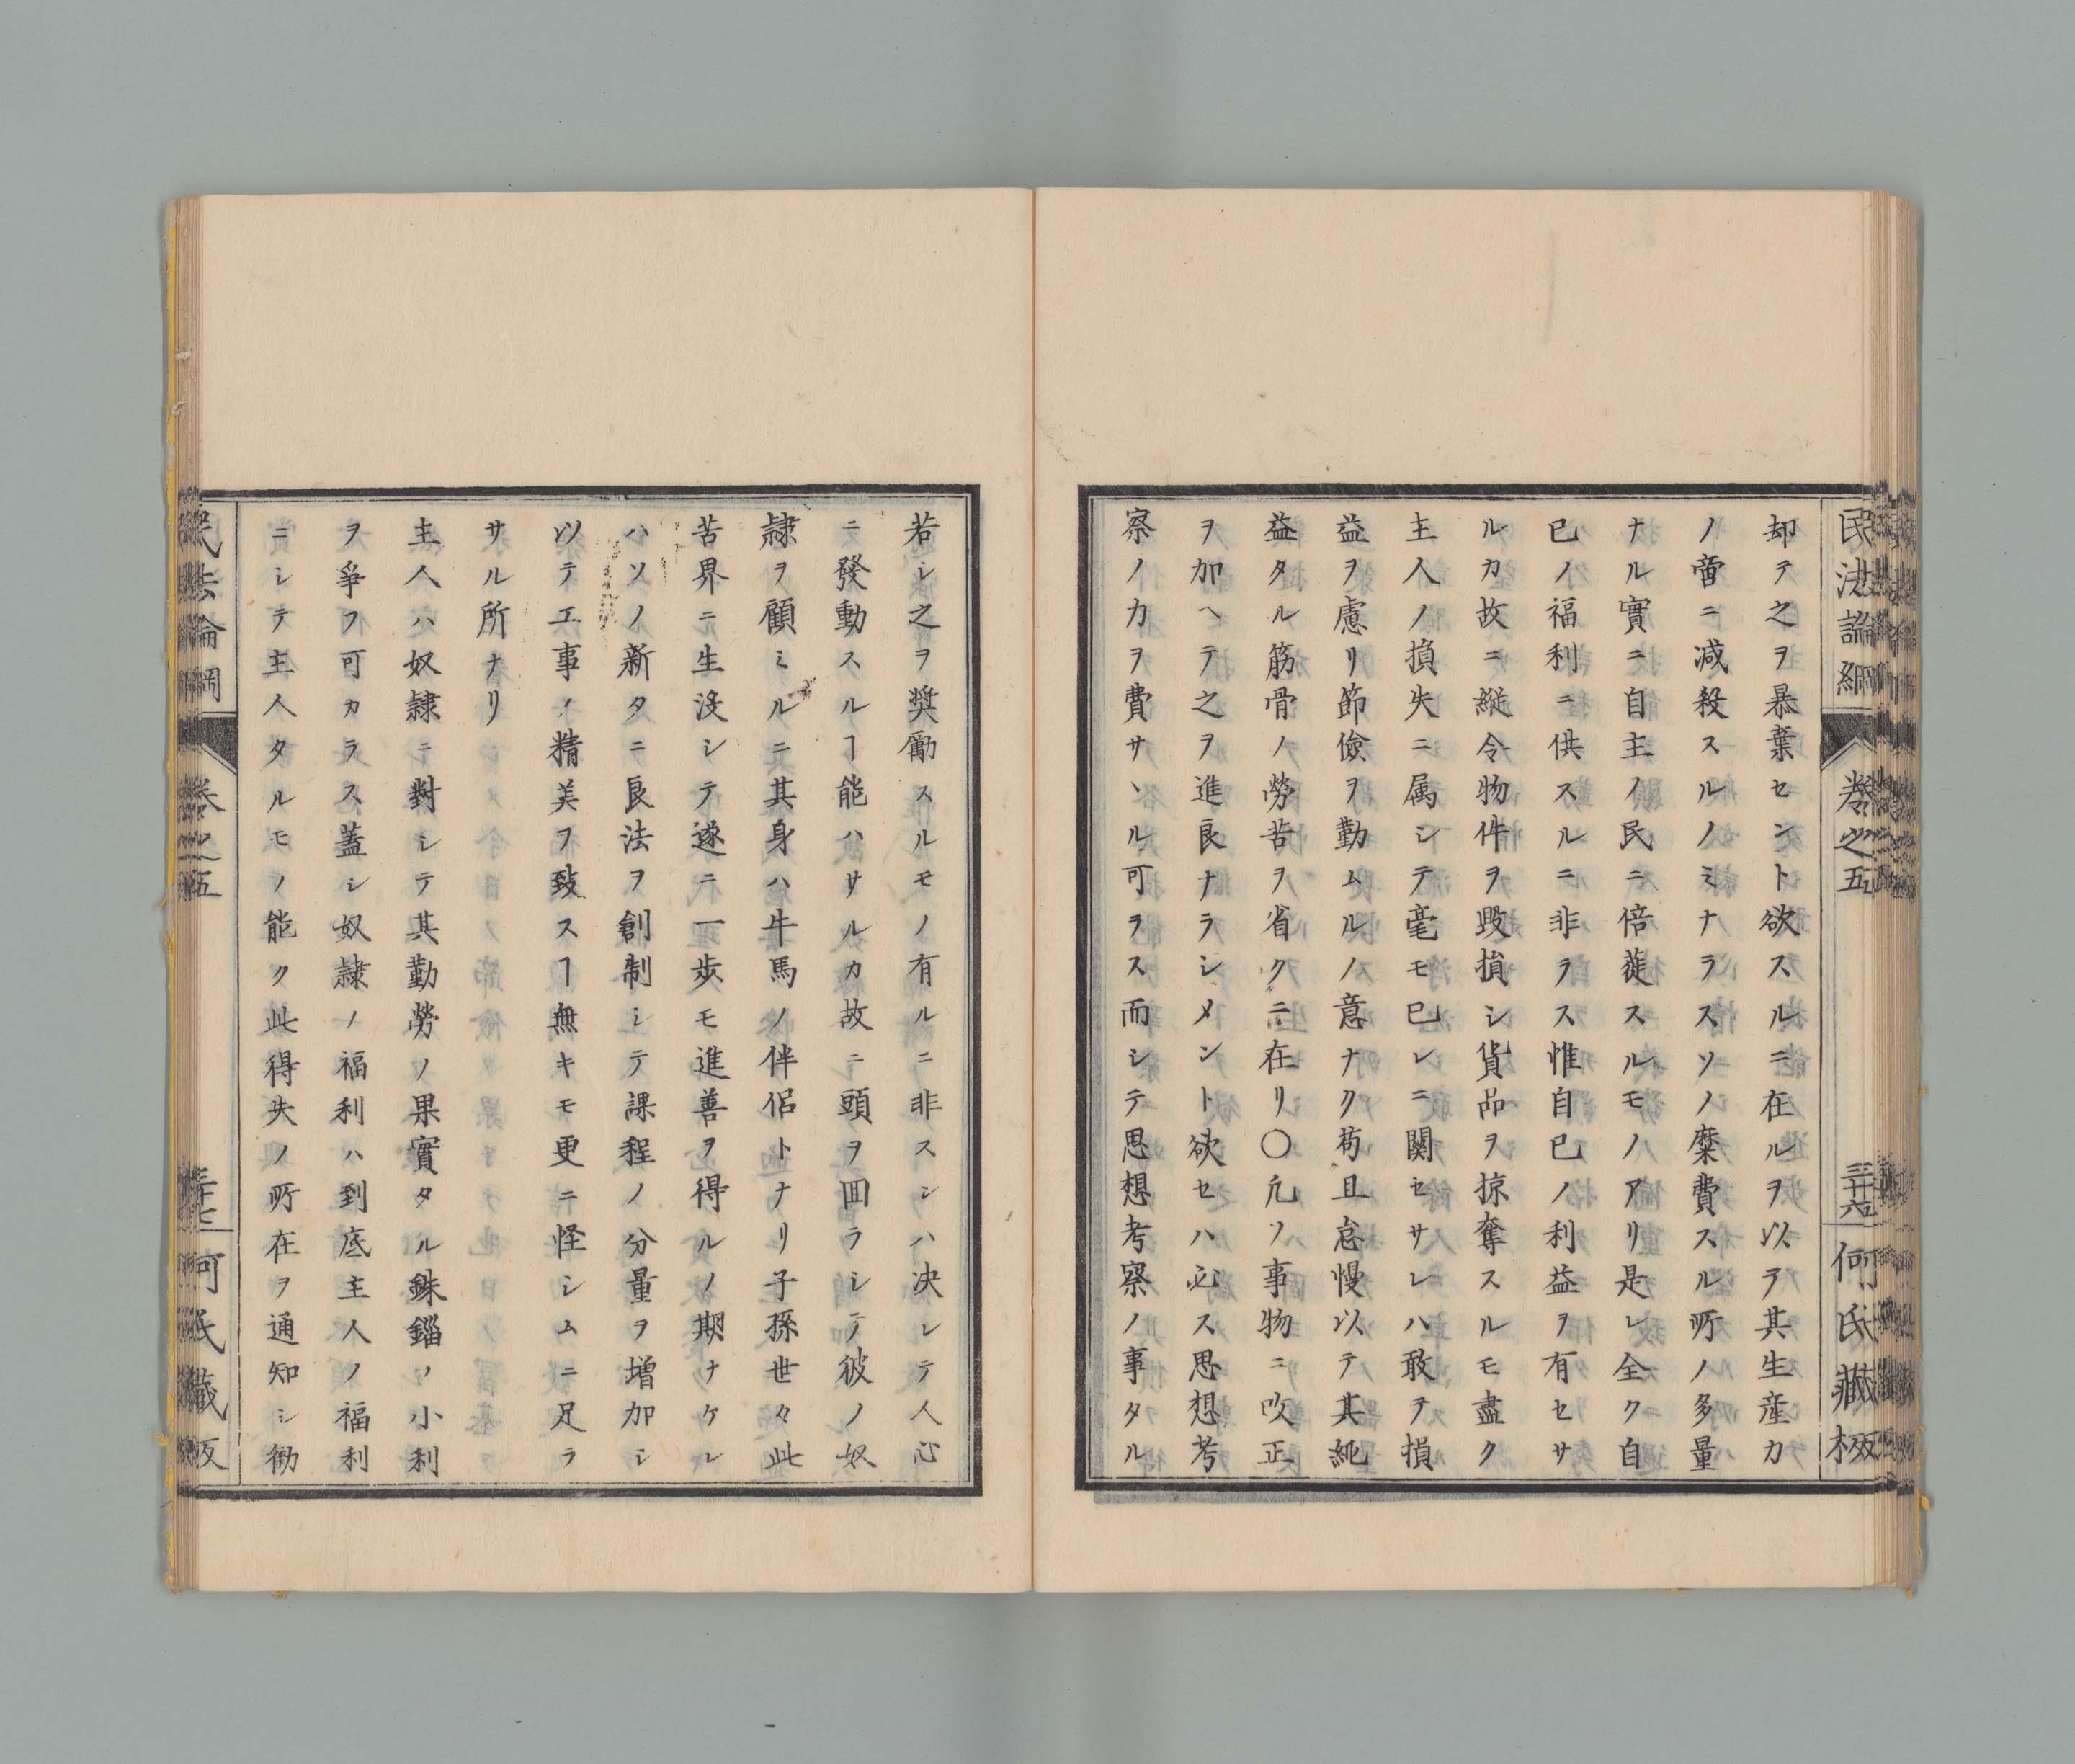 民法論綱 卷之五 三十六 何氏藏板
却テ之ヲ暴棄セント欲スルニ在ルヲ以テ其生産カ
ノ啻ニ減殺スルノミナラスソノ糜費スル所ノ多量
ナル實ニ自主ノ民ニ倍蓰スルモノアリ是レ全ク自
已ノ福利ニ供スルニ非ラス惟自已ノ利益ヲ有セサ
ルカ故ニ縱令物件ヲ毀損シ貨品ヲ掠奪スルモ盡ク
主人ノ損失ニ属シテ毫モ已レニ関セサレハ敢テ損
益ヲ慮リ節儉ヲ勤ムルノ意ナク苟且怠慢以テ其純
益タル筋骨ノ勞苦ヲ省クニ在リ〇凢ソ事物ニ攺正
ヲ加ヘテ之ヲ進良ナラシメント欲セハ必ス思想考
察ノカヲ費サヽル可ラス而シテ思想考察ノ事タル
若シ之ヲ奬勵スルモノ有ルニ非スンハ决レテ人心
ニ發動スルヿ能ハサルカ故ニ頭ヲ囬ラシテ彼ノ奴
隷ヲ顧ミルニ其身ハ牛馬ノ伴侶トナリ子孫世々此
苦界ニ生没シテ遂ニ一歩モ進善ヲ得ルノ期ナケレ
ハソノ新タニ良法ヲ創制シテ課程ノ分量ヲ增加シ
以テ工事ノ精美ヲ致スヿ無キモ更ニ怪シムニ足ラ
サル所ナリ
主人ハ奴隷ニ對シテ其勤勞ノ果實タル銖錙ノ小利
ヲ爭フ可カラス蓋シ奴隷ノ福利ハ到底主人ノ福利
ニシテ主人タルモノ能ク此得失ノ所在ヲ通知シ勧
民法論綱 卷之五 三十七 何氏藏板